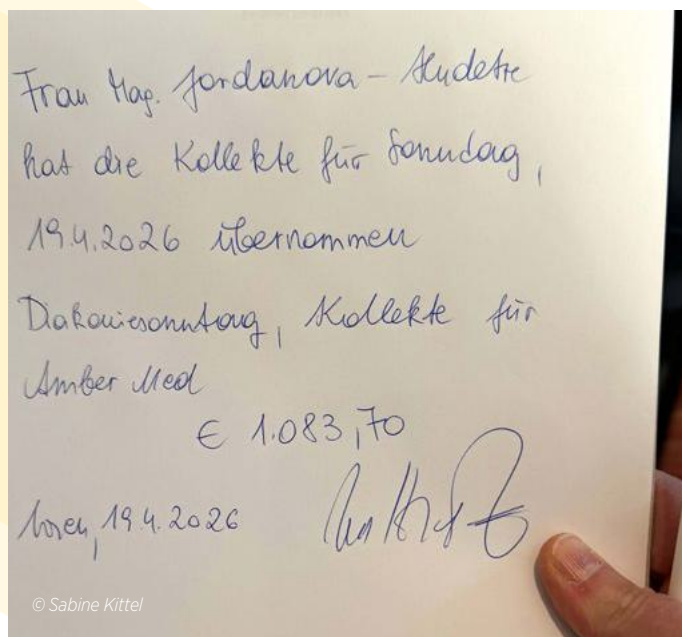 Frau Mag. Jordanova-
hat die Kollekte für Sonntag,
19.4.2026 übernommen
Diakoniesonntag, Kollekte für
Amber Med
€ 1.083,70
Wien, 19.4.2026
© Sabine Kittel